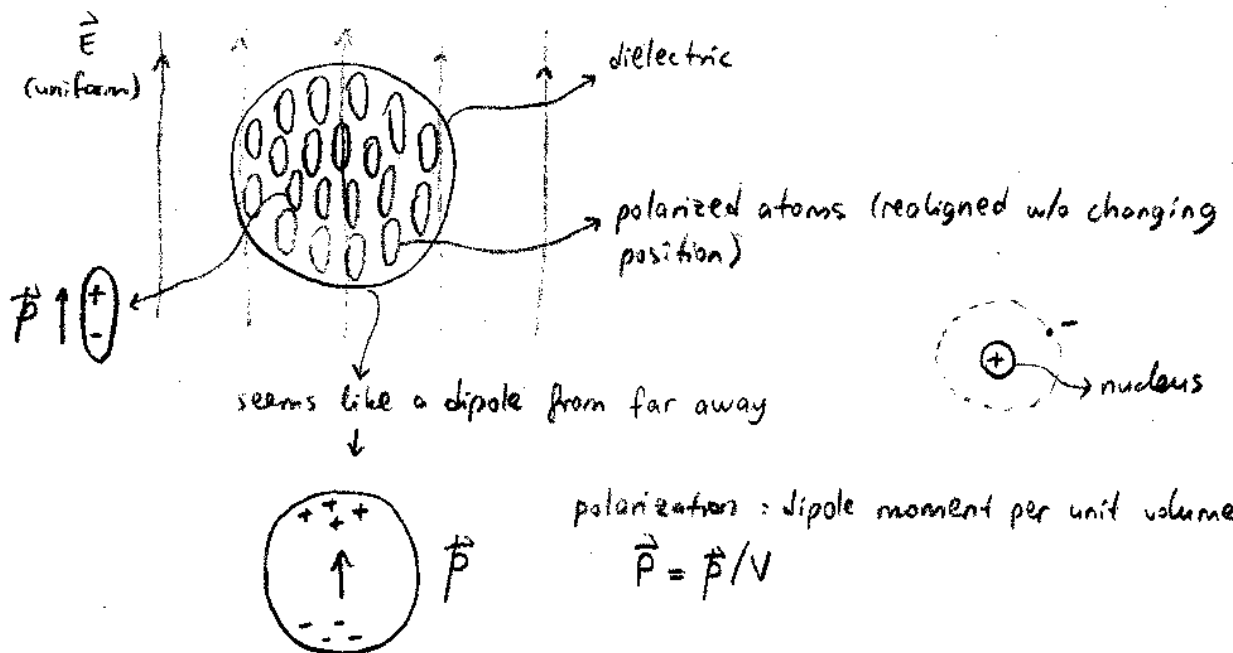 E⃗
(uniform)
dielectric
polarized atoms (realigned w/o changing
position)
p⃗ ↑ + -
-
+
nucleus
seems like a dipole from far away
+ + + +
p⃗
- - - - -
polarization : dipole moment per unit volume
P⃗ = p⃗/V